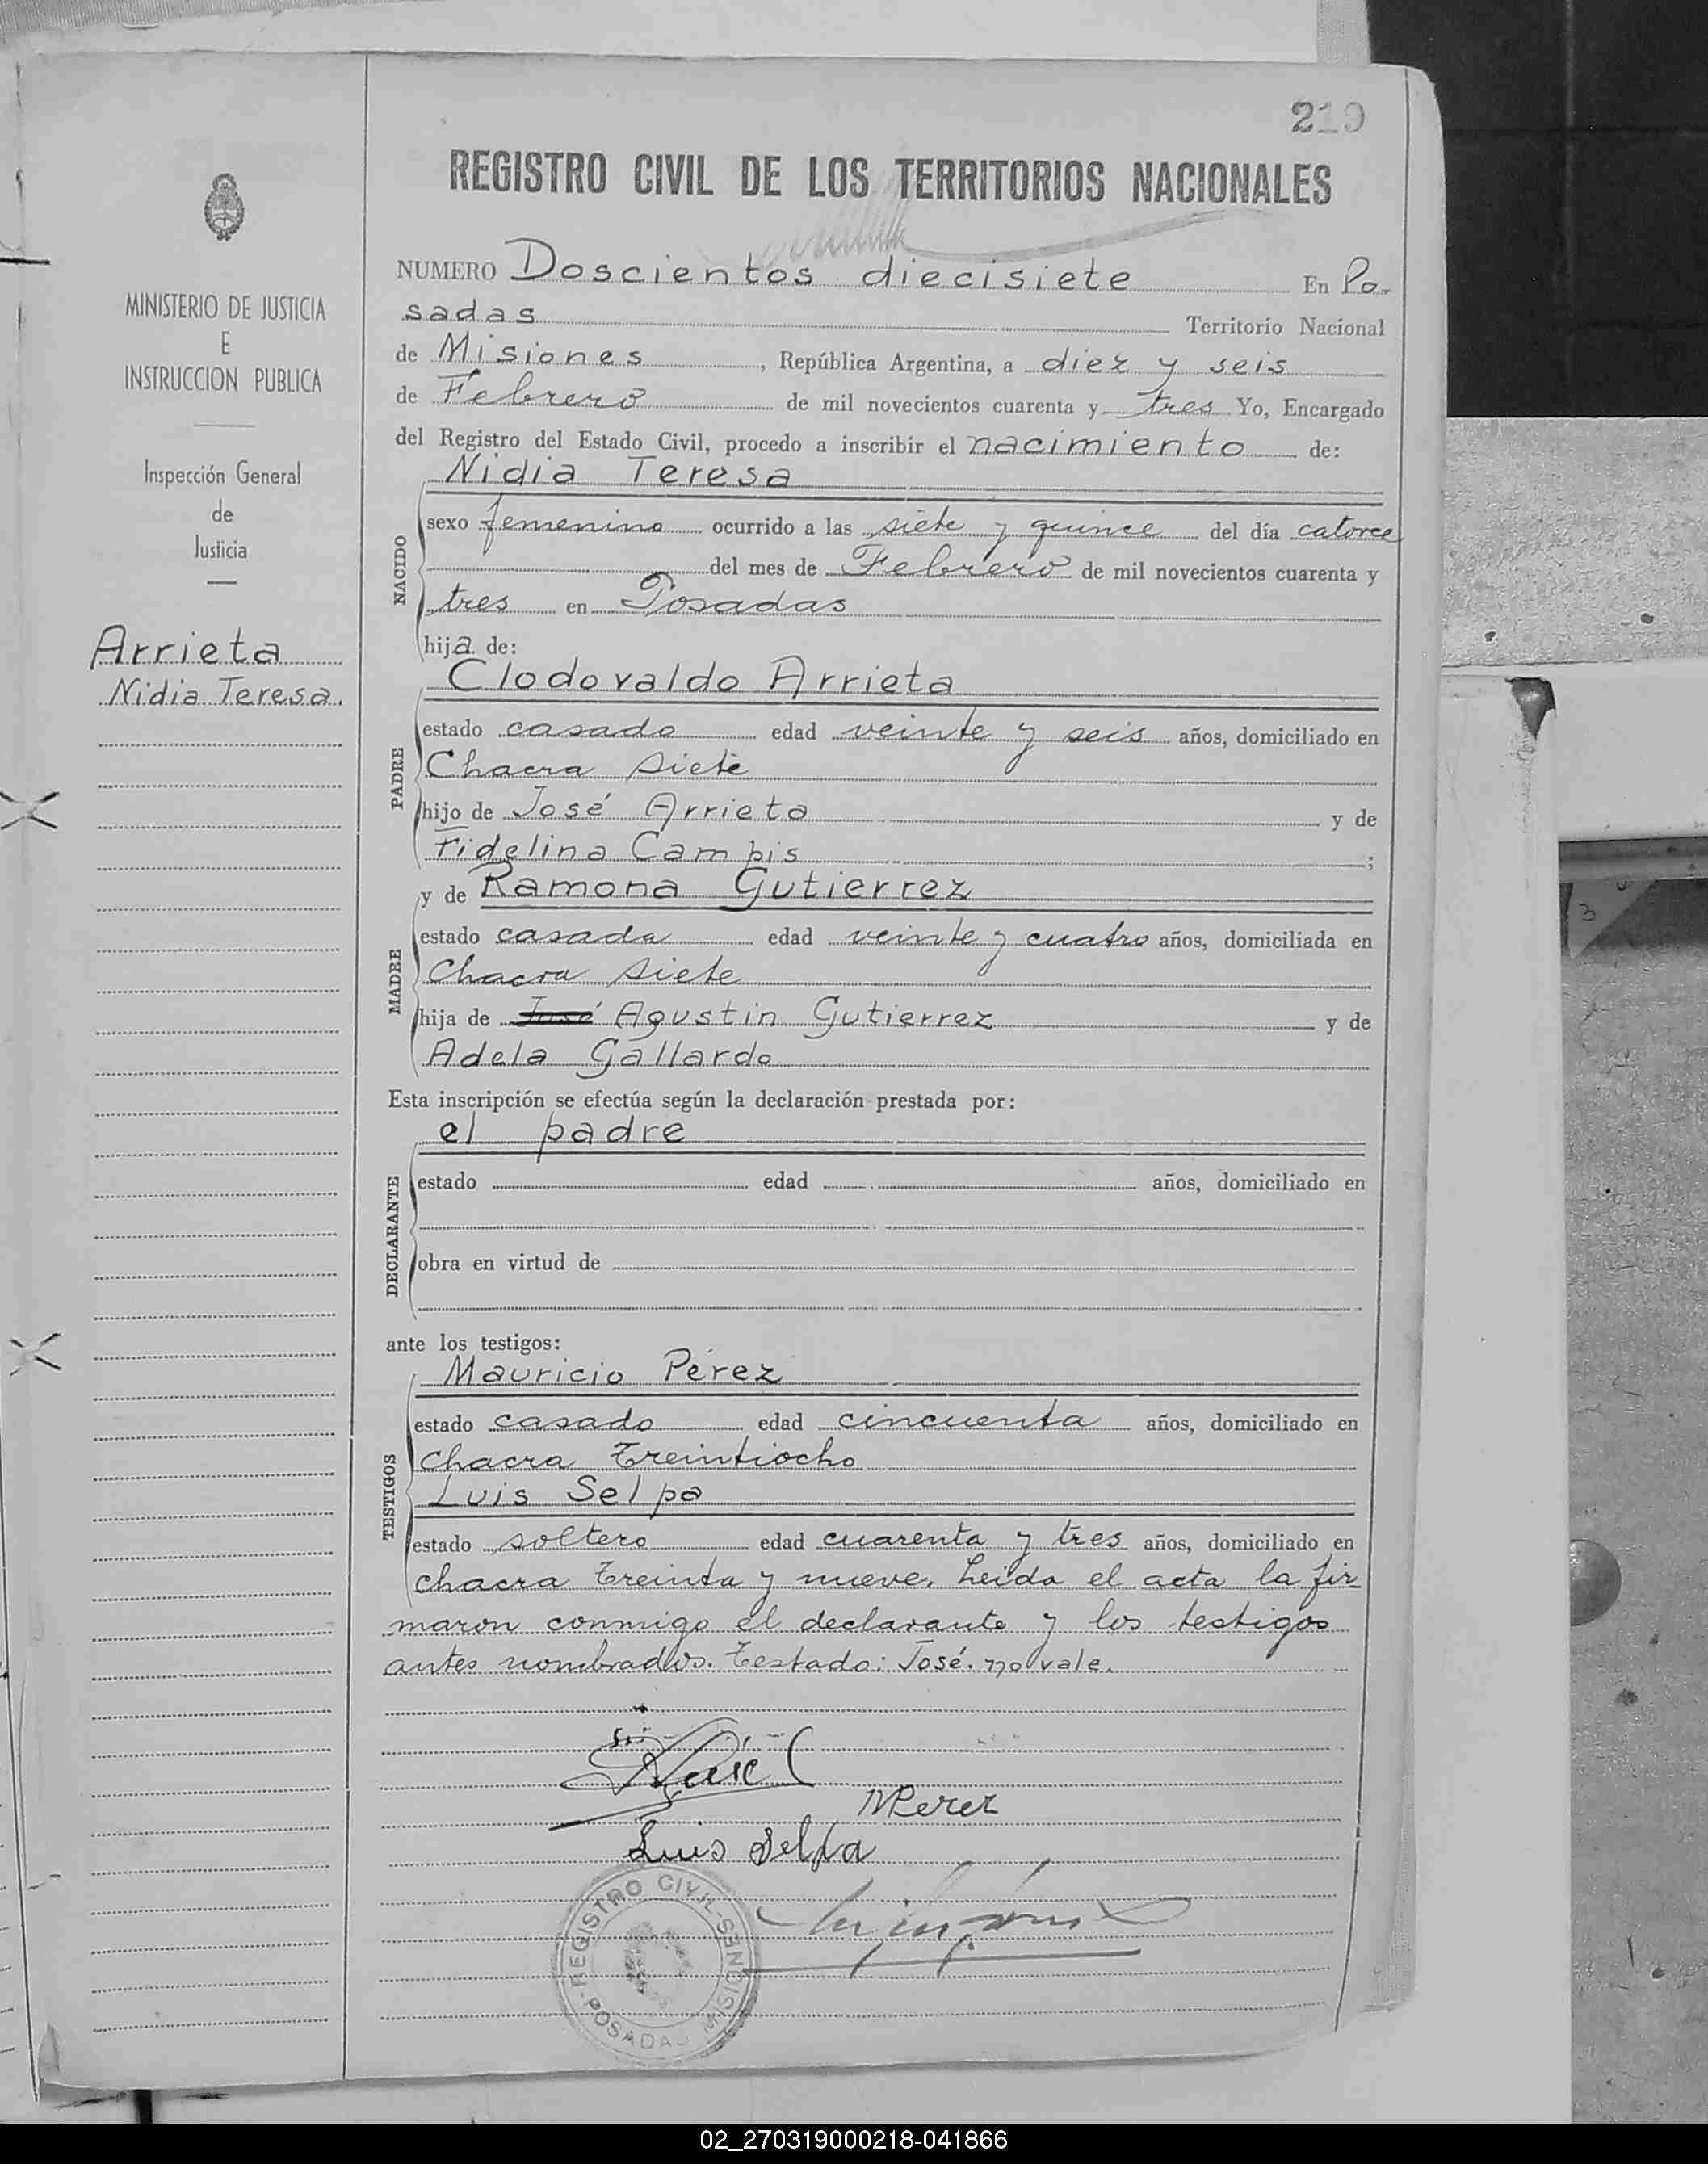 219
REGISTRO CIVIL DE LOS TERRITORIOS NACIONALES
MINISTERIO DE JUSTICIA
E
INSTRUCCION PUBLICA
Inspección General
de
Justicia
Arrieta
Nidia Teresa.
NUMERO Doscientos diecisiete En Po-
sadas Territorio Nacional
de Misiones, República Argentina, a diez y seis
de Febrero de mil novecientos cuarenta y tres Yo, Encargado
del Registro del Estado Civil, procedo a inscribir el nacimiento de:
Nidia Teresa
NACIDO
sexo femenino ocurrido a las siete y quince del día catorce
del mes de Febrero de mil novecientos cuarenta y
tres en Posadas
hija de:
Clodovaldo Arrieta
PADRE
estado casado edad veinte y seis años, domiciliado en
Chacra siete
hijo de José Arrieta y de
Fidelina Campis;
y de Ramona Gutierrez
MADRE
estado casada edad veinte y cuatro años, domiciliada en
Chacra siete
hija de José Agustin Gutierrez y de
Adela Gallardo
Esta inscripción se efectúa según la declaración prestada por:
el padre
DECLARANTE
estado edad años, domiciliado en
obra en virtud de
ante los testigos:
Mauricio Pérez
TESTIGOS
estado casado edad cincuenta años, domiciliado en
chacra treintiocho
Luis Selpa
estado soltero edad cuarenta y tres años, domiciliado en
chacra treinta y nueve. Leida el acta la fir
maron conmigo el declarante y los testigos
antes nombrados. Testado: José. no vale.
MPerez
Luis Selpa
REGISTRO CIVIL - POSADAS MISIONES
02_270319000218-041866